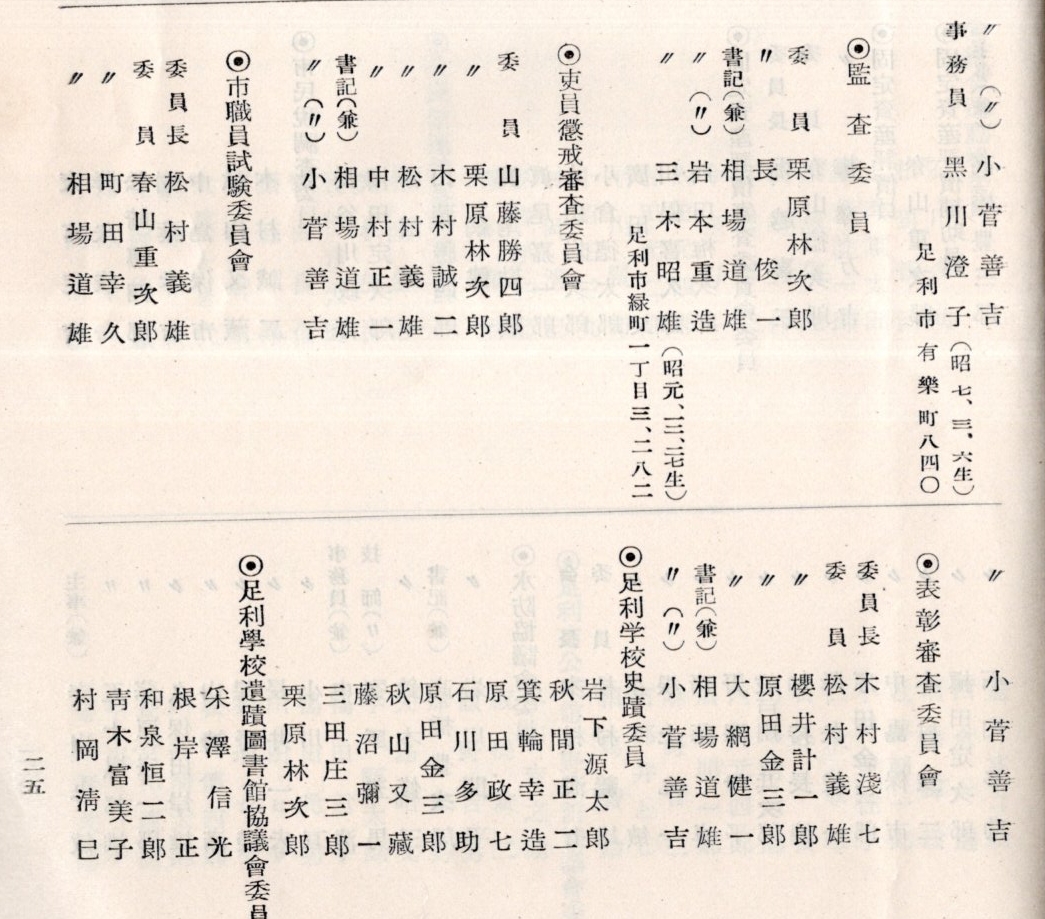 〃(〃)小菅善吉
事務員 黒川澄子(昭七、三、六生)
足利市有樂町八四〇
◉監査委員
委員 栗原林次郎
〃 長俊一
書記(兼)相場道雄
〃(〃)岩本重造
〃 三木昭雄(昭元、一二、二七生)
足利市緑町一丁目三、二八二
◉吏員懲戒審査委員會
委員 山藤勝四郎
〃 栗原林次郎
〃 木村誠二
〃 松村義雄
〃 中村正一
書記(兼)相場道雄
〃(〃)小菅善吉
◉市職員試験委員會
委員長 松村義雄
委員 春山重次郎
〃 町田幸久
〃 相場道雄
〃 小菅善吉
◉表彰審査委員會
委員長 木村淺七
委員 松村義雄
〃 櫻井計二郎
〃 原田金三郎
〃 大網健一
書記(兼)相場道雄
〃(〃)小菅善吉
◉足利学校史蹟委員
岩下源太郎
秋間正二
箕輪幸造
原田政七
石川多助
原田金三郎
秋山又藏
藤沼彌一
三田庄三郎
栗原林次郎
◉足利學校遺蹟圖書館協議會委員
采澤信光
根岸正
和泉恒二郎
靑木富美子
村岡淸巳
二五